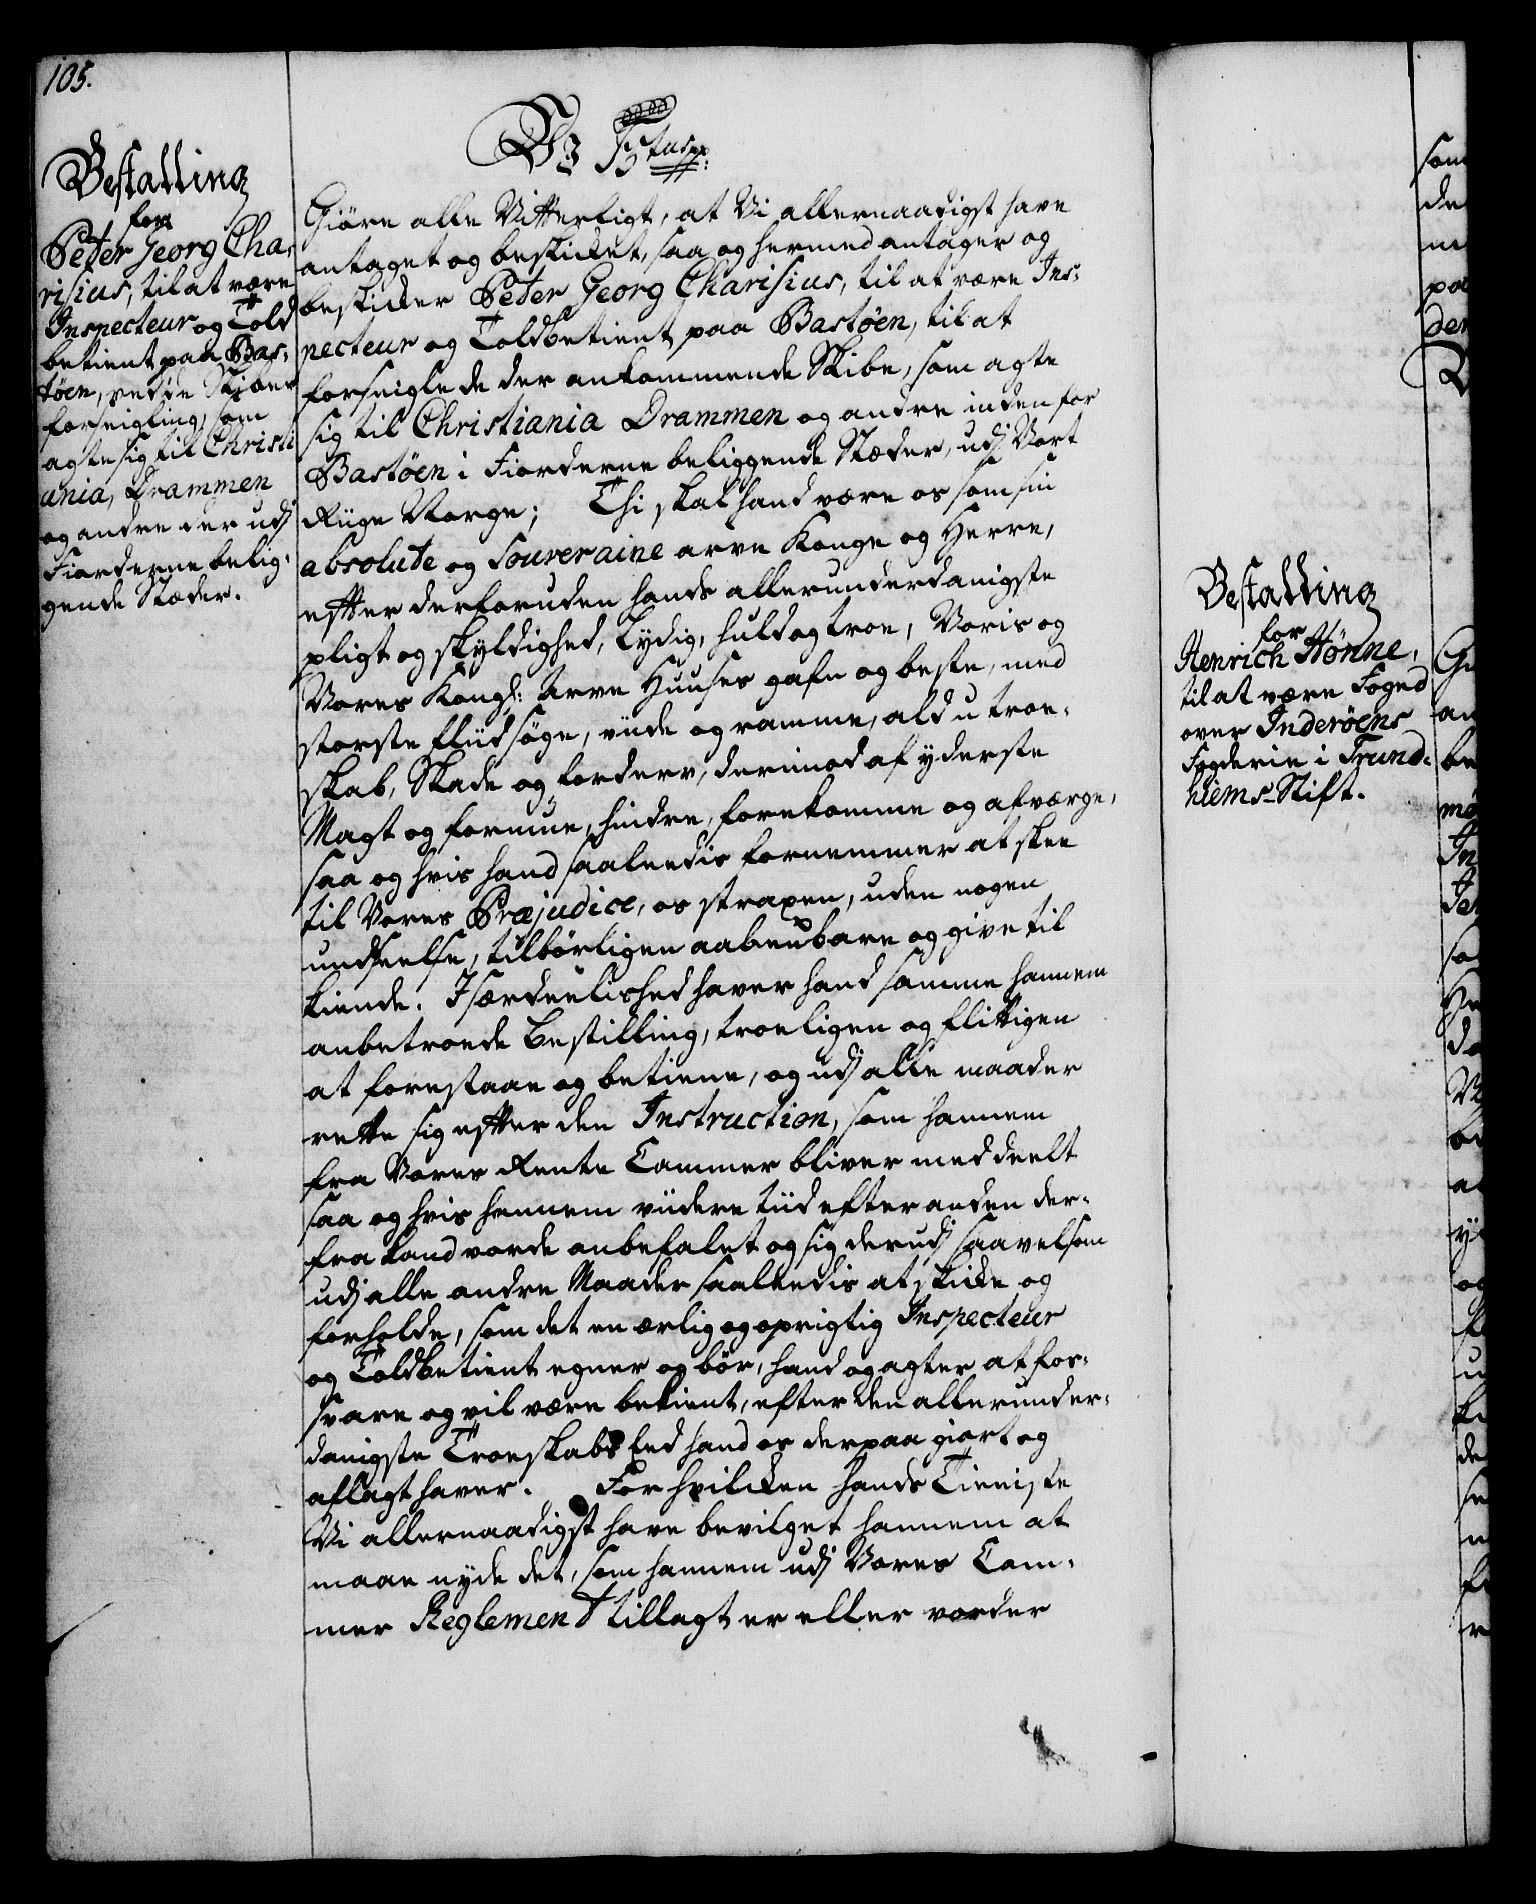 105.
Bestalling
for
Peter Georg Cha-
risius, til at være
Inspecteur og Told
betient paa Bas-
töen, ved de Skibes
forseigling, som
agte sig til Christi
ania, Drammen
og andre der udj
Fiorderne belig-
gende Stæder.
Vi Fr
Giöre alle Vitterligt, at Vi allernaadigst have
antaget og beskicket, saa og hermed antager og
beskicker Peter Georg Charisius, til at være Ins-
pecteur og Toldbetient paa Bastöen, til at
forseigle de der ankommende Skibe, som agte
sig til Christiania Drammen og andre inden for
Bastöen i Fiorderne beliggende Stæder, udj Vort
Riige Norge; Thi skal hand være os som sin
absolute og Souveraine arve Konge og Herre,
effter derforuden hands allerunderdanigste
pligt og skyldighed, lydig, huld og troe, Voris og
Vores Kongl: Arve Huuses gafn og beste, med
storste fliid söge, viide og ramme, ald utroe-
skab, Skade og forderv, derimod af yderste
Magt og formue, hindre, forekomme og afværge,
saa og hvis hand saaleedis fornemmer at skee
til Vores Præjudice, os straxen, uden nogen
undseelse, tilbörligen aabenbare og give til
kiende. Isærdeelished haver hand samme hannem
anbetroede bestilling, troeligen og flittigen
at forestaae og betiene, og udj alle maader
rette sig effter den Instruction, som hannem
fra Vores Rente Cammer bliver meddeelt
saa og hvis hannem viidere tiid efter anden der-
fra kand vorde anbefalet og sig derudj saavelsom
udj alle andre Maader saaleedis at skicke og
forholde, som det en ærlig og oprigtig Inspecteur
og Toldbetient egner og bör, hand og agter at for-
svare og vil være bekient, efter den allerunder-
danigste Troeskabs Eed hand os derpaa giort og
aflagt haver. For hvilcken hands Tieniste
Vi allernaadigst have bevilget hannem at
maae nyde det, som hannem udj Vores Cam-
mer Reglement tillagt er eller vorder
Bestalling
for
Henrich Hönne,
til at være Foged
over Inderöens
Fogderie i Trund-
hiems-Stift.